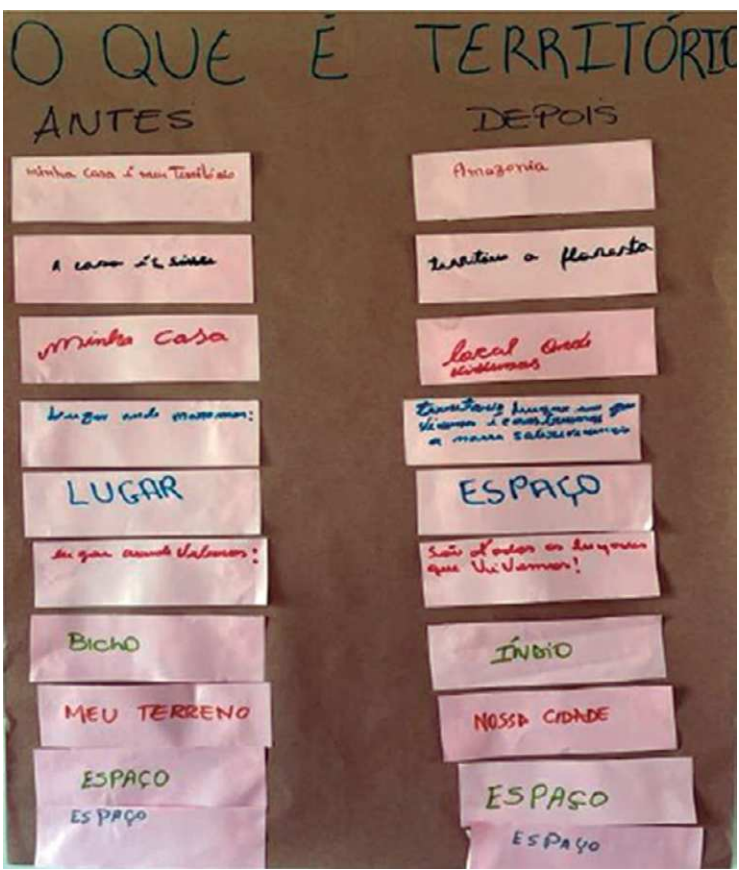 O QUE É TERRITÓRIO
ANTES
minha casa é meu Território
A casa
minha casa
lugar onde moramos:
LUGAR
lugar aonde
BICHO
MEU TERRENO
ESPAÇO
ESPAÇO
DEPOIS
Amazonia
território a floresta
local onde
vivemos
território lugar em que
vivemos e construimos
a nossa
ESPAÇO
são todos os lugares
que Vivemos!
ÍNDIO
NOSSA CIDADE
ESPAÇO
ESPAÇO